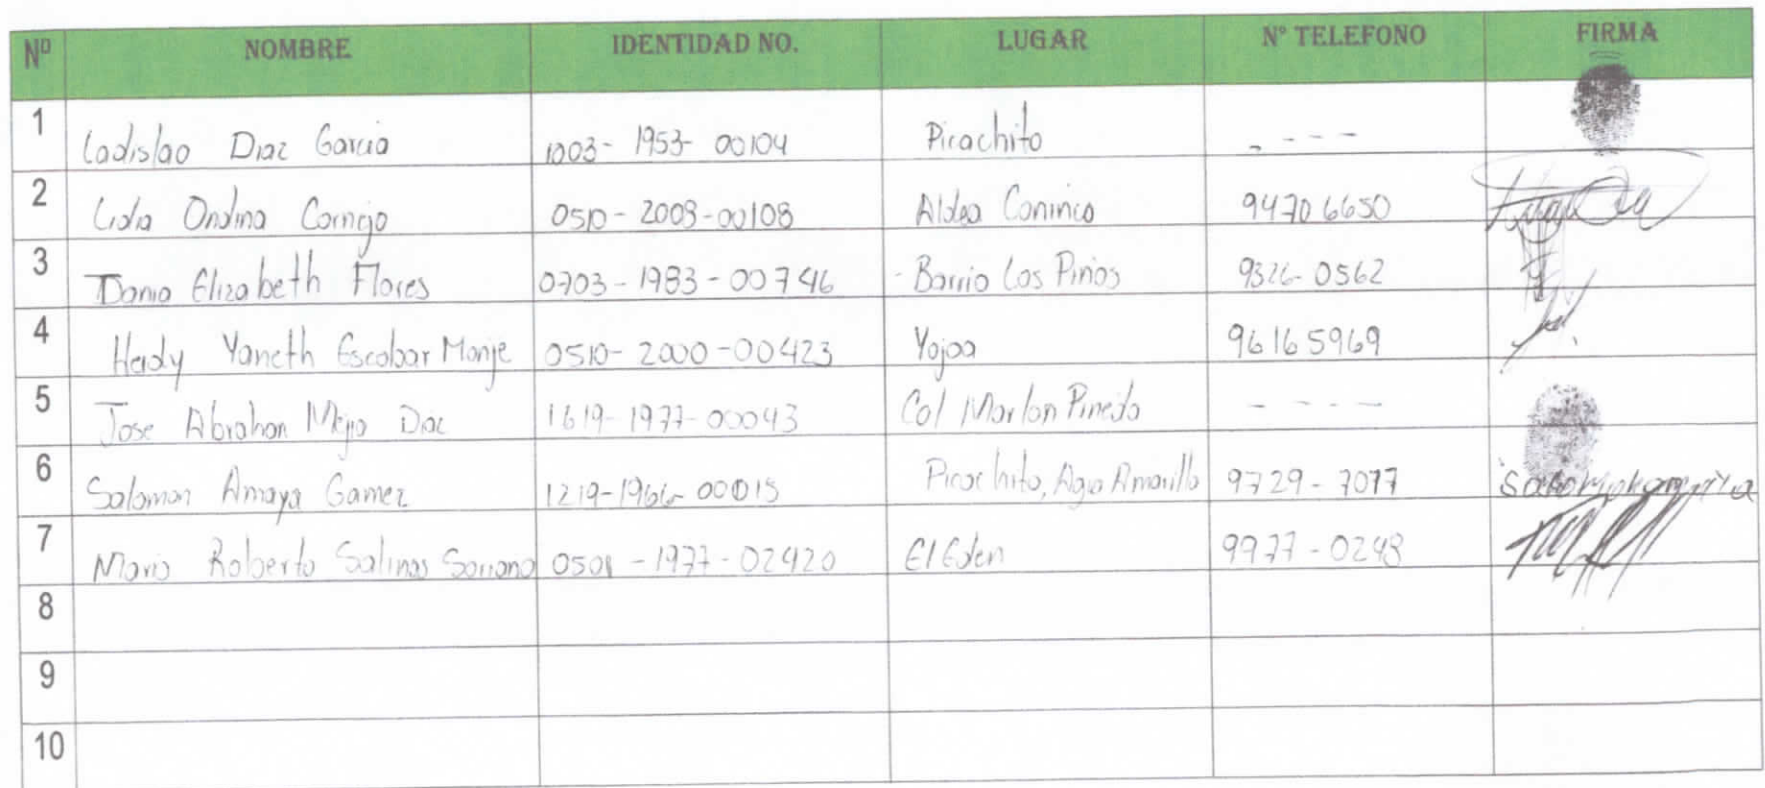 Nº NOMBRE IDENTIDAD NO. LUGAR Nº TELEFONO FIRMA
1 Ladislao Diaz Garcia 1003-1953-00104 Picachito - - - -
2 Lidia Ondina Cornejo 0510-2008-00108 Aldea Coninca 94706650
3 Dania Elizabeth Flores 0703-1983-00746 - Barrio Los Pinos 9326-0562
4 Heidy Yaneth Escobar Monje 0510-2000-00423 Yojoa 96165969
5 Jose Abrahan Mejia Diaz 1619-1977-00043 Col Marlon Pineda - - - -
6 Salomon Amaya Gamez 1219-1966-00015 Picachito, Agua Amarilla 9729-7077
7 Mario Roberto Salinas Soriano 0501-1977-02420 El Eden 9977-0248
8
9
10